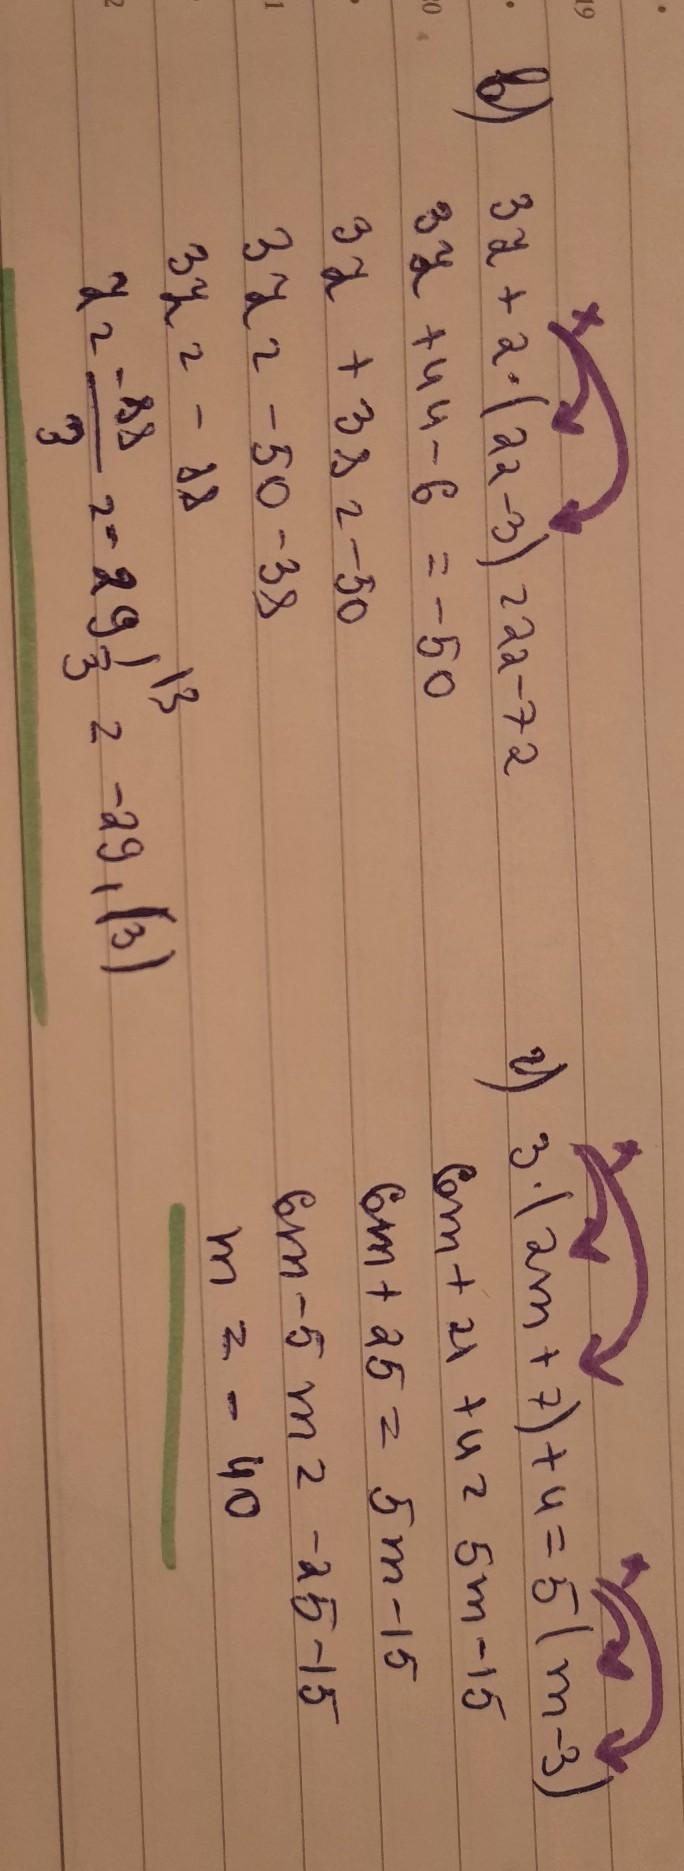 в) 3z + 2·(22-3) = 22-72
3z + 44-6 = -50
3z + 38 = -50
3z = -50-38
3z = -88
z = -88/3 = -29 1/3 = -29,(3)
г) 3·(2m + 7) + 4 = 5(m-3)
6m + 21 + 4 = 5m-15
6m + 25 = 5m-15
6m-5m = -25-15
m = -40
19
20
1
2